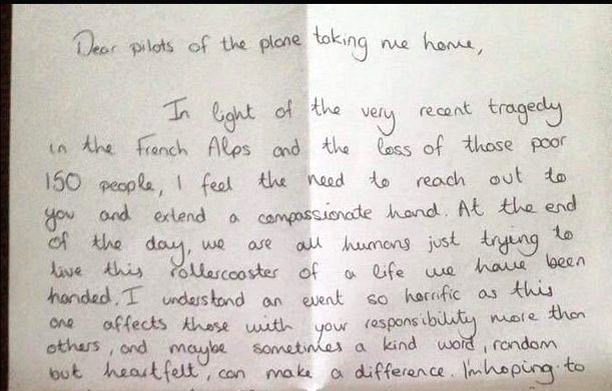 Dear pilots of the plane taking me home,
In light of the very recent tragedy
in the French Alps and the loss of those poor
150 people, I feel the need to reach out to
you and extend a compassionate hand. At the end
of the day, we are all humans just trying to
live this rollercoaster of a life we have been
handed. I understand an event so horrific as this
one affects those with your responsibility more than
others, and maybe sometimes a kind word, random
but heartfelt, can make a difference. I'm hoping to